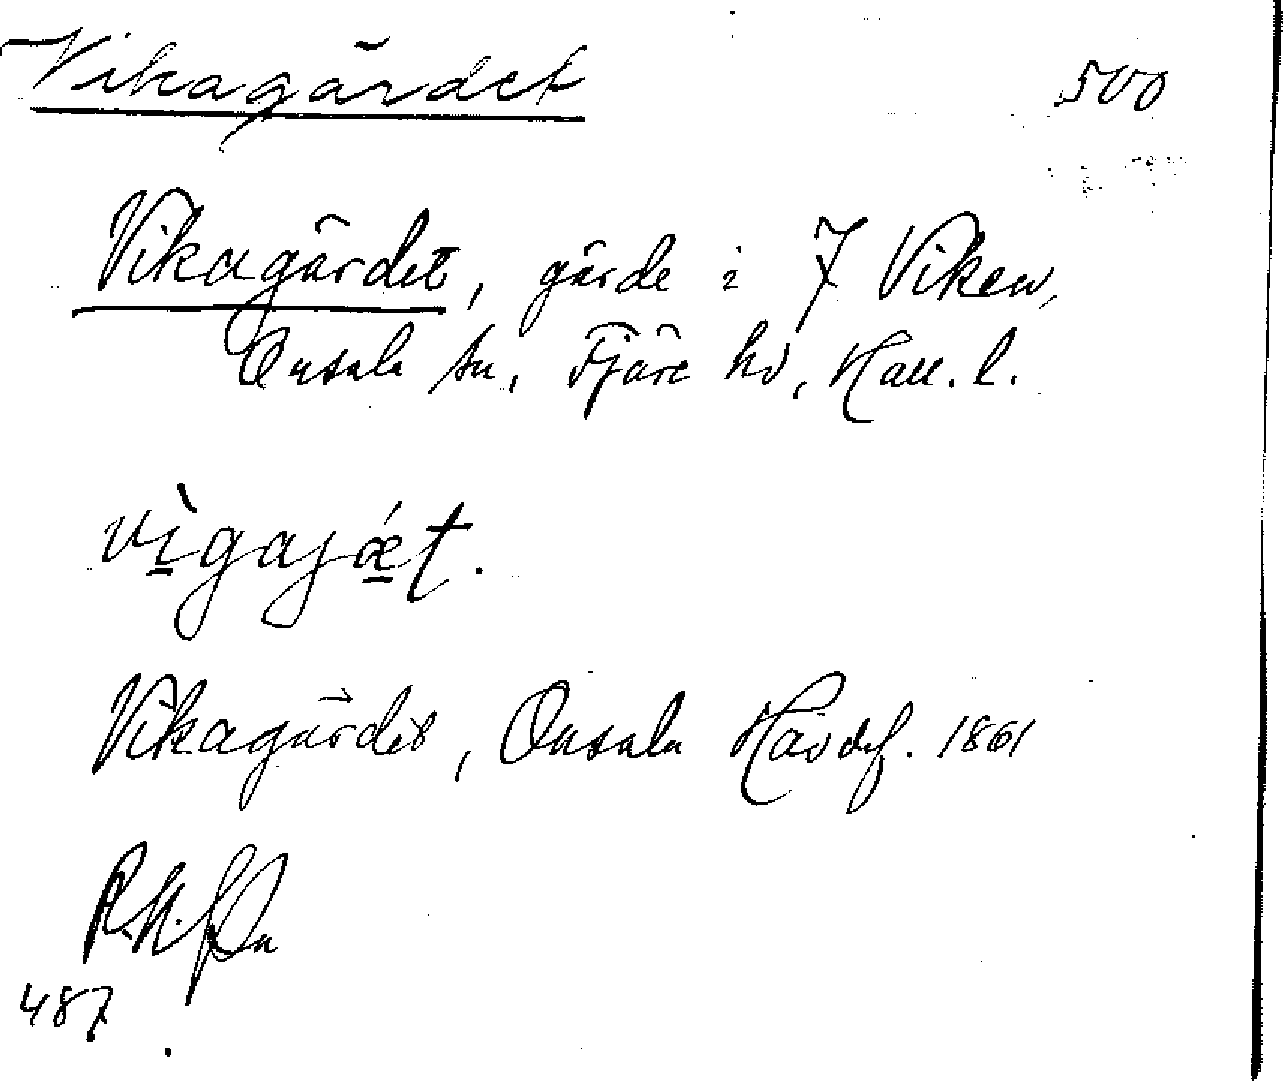 Vikagärdet 500
Vikagärdet, gärde i 7 Viken,
Onsala sn, Fjäre hd, Hall. l.
vìgajǽt.
Vikagärdet, Onsala Hävdef. 1861
487